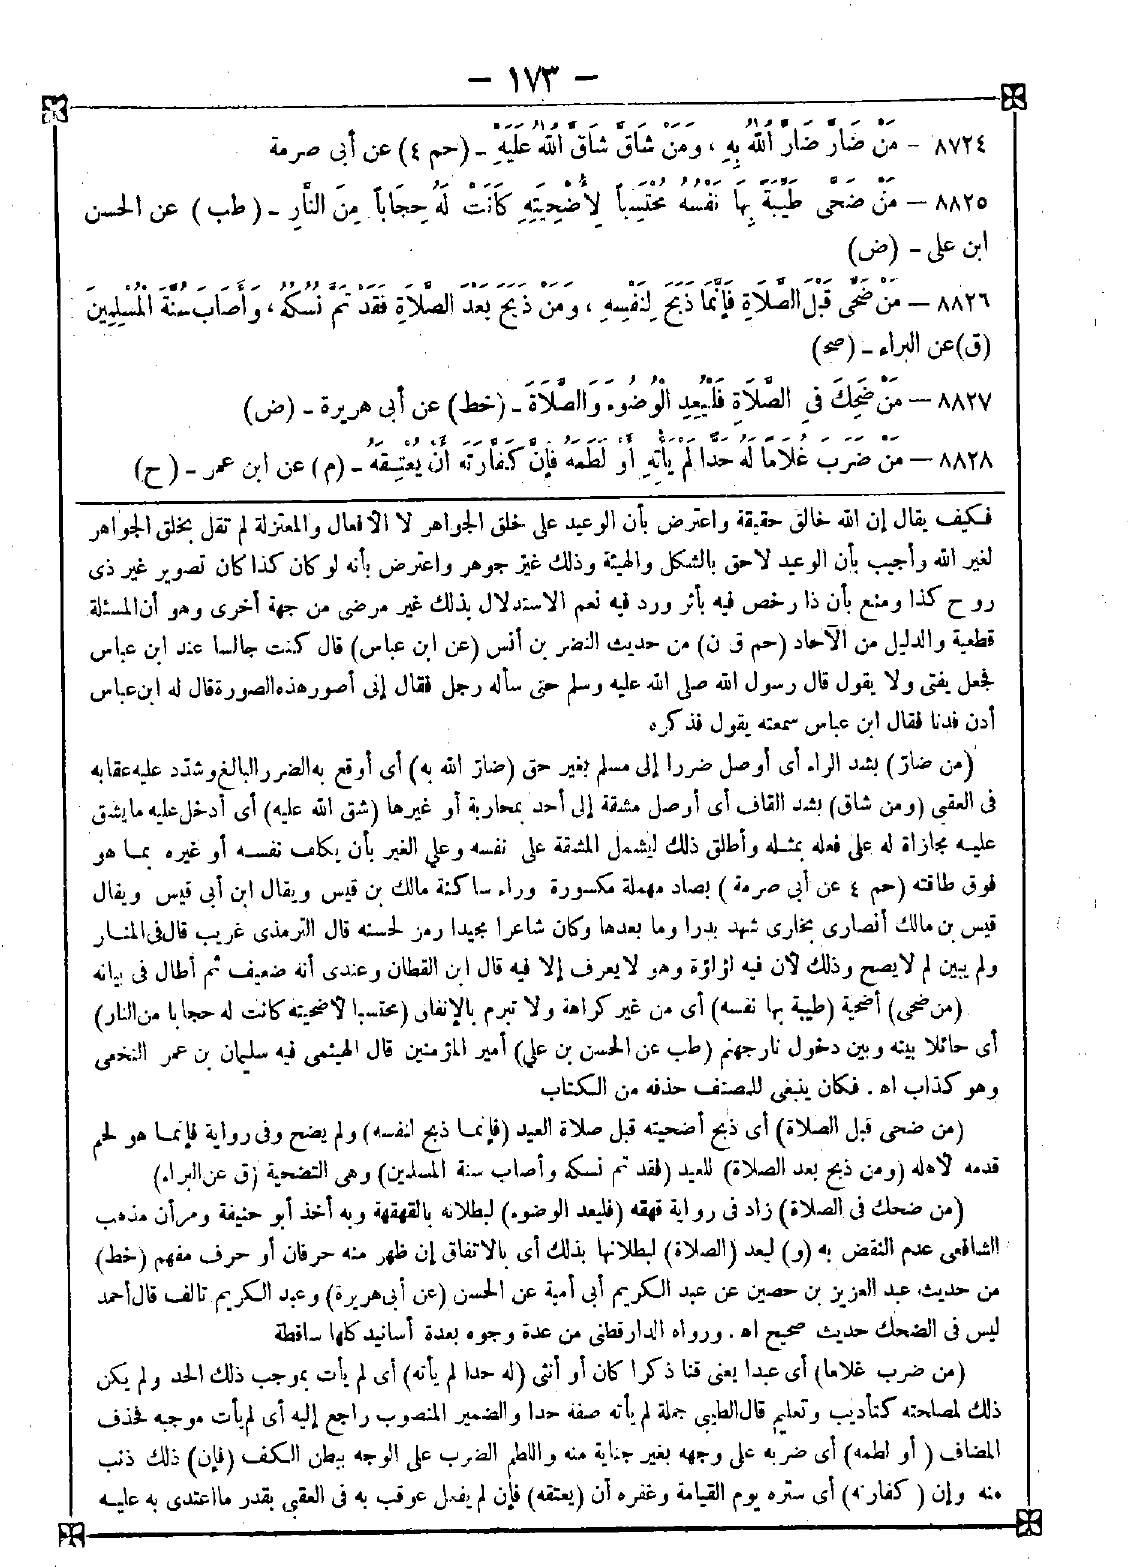 – ١٧٣ –
٨٧٢٤ – مَنْ ضَارَّ ضَارَّ اللهُ بِهِ ، وَمَنْ شَاقَّ شَاقَّ اللهُ عَلَيْهِ – (حم ٤) عن أبى صرمة
٨٨٢٥ – مَنْ ضَحَّى طَيِّبَةً بِهَا نَفْسُهُ مُحْتَسِباً لِأُضْحِيَتِهِ كَانَتْ لَهُ حِجَاباً مِنَ النَّارِ – (طب) عن الحسن
ابن على – (ض)
٨٨٢٦ – مَنْ ضَحَّى قَبْلَ الصَّلَاةِ فَإِنَّمَا ذَبَحَ لِنَفْسِهِ ، وَمَنْ ذَبَحَ بَعْدَ الصَّلَاةِ فَقَدْ تَمَّ نُسُكُهُ ، وَأَصَابَ سُنَّةَ الْمُسْلِمِينَ
(ق) عن البراء – (صح)
٨٨٢٧ – مَنْ ضَحِكَ فِي الصَّلَاةِ فَلْيُعِدِ الْوُضُوءَ وَالصَّلَاةَ – (خط) عن أبى هريرة – (ض)
٨٨٢٨ – مَنْ ضَرَبَ غُلَامًا لَهُ حَدًّا لَمْ يَأْتِهِ أَوْ لَطَمَهُ فَإِنَّ كَفَّارَتَهُ أَنْ يُعْتِقَهُ – (م) عن ابن عمر – (ح)
فكيف يقال إن الله خالق حقيقة واعترض بأن الوعيد على خلق الجواهر لا الافعال والمعتزلة لم تقل بخلق الجواهر
لغير الله وأجيب بأن الوعيد لاحق بالشكل والهيئة وذلك غير جوهر واعترض بأنه لو كان كذا كان تصوير غير ذى
روح كذا ومنع بأن ذا رخص فيه بأثر ورد فيه نعم الاستدلال بذلك غير مرضى من جهة أخرى وهو أن المسئلة
قطعية والدليل من الآحاد (حم ق ن) من حديث النضر بن أنس (عن ابن عباس) قال كنت جالسا عند ابن عباس
فجعل يفتى ولا يقول قال رسول الله صلى الله عليه وسلم حتى سأله رجل فقال إنى أصور هذه الصورة قال له ابن عباس
أدن فدنا فقال ابن عباس سمعته يقول فذكره
(من ضارّ) بشد الراء أى أوصل ضررا إلى مسلم بغير حق (ضارّ الله به) أى أوقع به الضرر البالغ وشدّد عليه عقابه
فى العقبى (ومن شاق) بشد القاف أى أوصل مشقة إلى أحد بمحاربة أو غيرها (شق الله عليه) أى أدخل عليه ما يشق
عليه مجازاة له على فعله بمثله وأطلق ذلك ليشمل المشقة على نفسه وعلى الغير بأن يكلف نفسه أو غيره بما هو
فوق طاقته (حم ٤ عن أبى صرمة) بصاد مهملة مكسورة وراء ساكنة مالك بن قيس ويقال ابن أبى قيس ويقال
قيس بن مالك أنصارى بخارى شهد بدرا وما بعدها وكان شاعرا مجيدا رمز لحسنه قال الترمذى غريب قال فى المنار
ولم يبين لم لا يصح وذلك لأن فيه لؤلؤة وهو لا يعرف إلا فيه قال ابن القطان وعندى أنه ضعيف ثم أطال فى بيانه
(من ضحى) أضحية (طيبة بها نفسه) أى من غير كراهة ولا تبرم بالإنفاق (محتسبا لأضحيته كانت له حجابا من النار)
أى حائلا بينه وبين دخول نار جهنم (طب عن الحسن بن على) أمير المؤمنين قال الهيثمى فيه سليمان بن عمر النخعى
وهو كذاب اه . فكان ينبغى للمصنف حذفه من الكتاب
(من ضحى قبل الصلاة) أى ذبح أضحيته قبل صلاة العيد (فإنما ذبح لنفسه) ولم يضح وفى رواية فإنما هو لحم
قدمه لأهله (ومن ذبح بعد الصلاة) للعيد (فقد تم نسكه وأصاب سنة المسلمين) وهى التضحية (ق عن البراء)
(من ضحك فى الصلاة) زاد فى رواية قهقه (فليعد الوضوء) لبطلانه بالقهقهة وبه أخذ أبو حنيفة ومر أن مذهب
الشافعى عدم النقض به (و) ليعد (الصلاة) لبطلانها بذلك أى بالاتفاق إن ظهر منه حرفان أو حرف مفهم (خط)
من حديث عبد العزيز بن حصين عن عبد الكريم أبى أمية عن الحسن (عن أبى هريرة) وعبد الكريم تالف قال أحمد
ليس فى الضحك حديث صحيح اه. ورواه الدارقطنى من عدة وجوه بعدة أسانيد كلها ساقطة
(من ضرب غلاما) أى عبدا يعنى قنا ذكرا كان أو أنثى (له حدا لم يأته) أى لم يأت بموجب ذلك الحد ولم يكن
ذلك لمصلحته كتأديب وتعليم قال الطيبى جملة لم يأته صفة حدا والضمير المنصوب راجع إليه أى لم يأت موجبه فحذف
المضاف (أو لطمه) أى ضربه على وجهه بغير جناية منه واللطم الضرب على الوجه ببطن الكف (فإن) ذلك ذنب
منه وإن (كفارته) أى ستره يوم القيامة وغفره أن (يعتقه) فإن لم يفعل عوقب به فى العقبى بقدر ما اعتدى به عليه